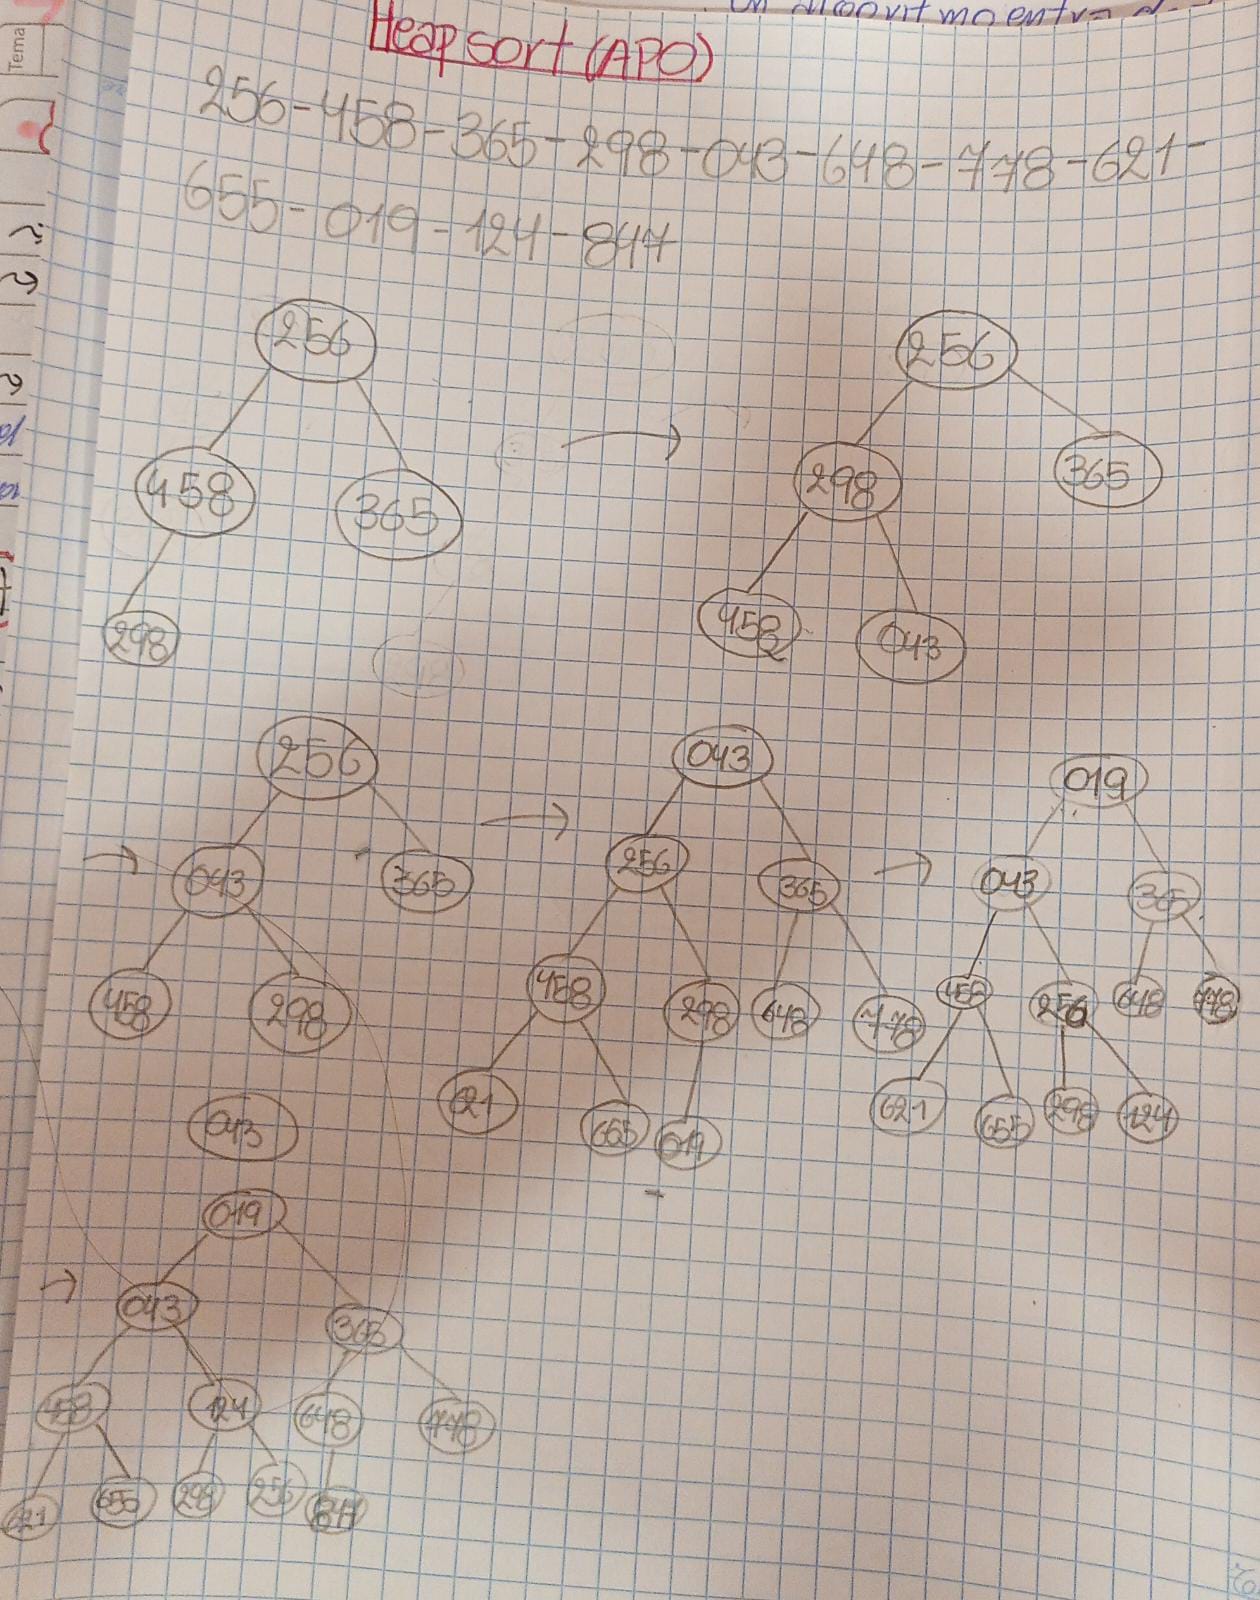 Heapsort (APO)
256-458-365-298-043-648-778-621-
655-019-124-847
256
458 365
298
256
298 365
458 043
256
043 365
458 298
043
256 365
458 298 648 778
621 655 019
019
043 365
458 256 648 778
621 655 298 124
043
019
043 365
458 124 648 778
621 655 298 256 847
Tema